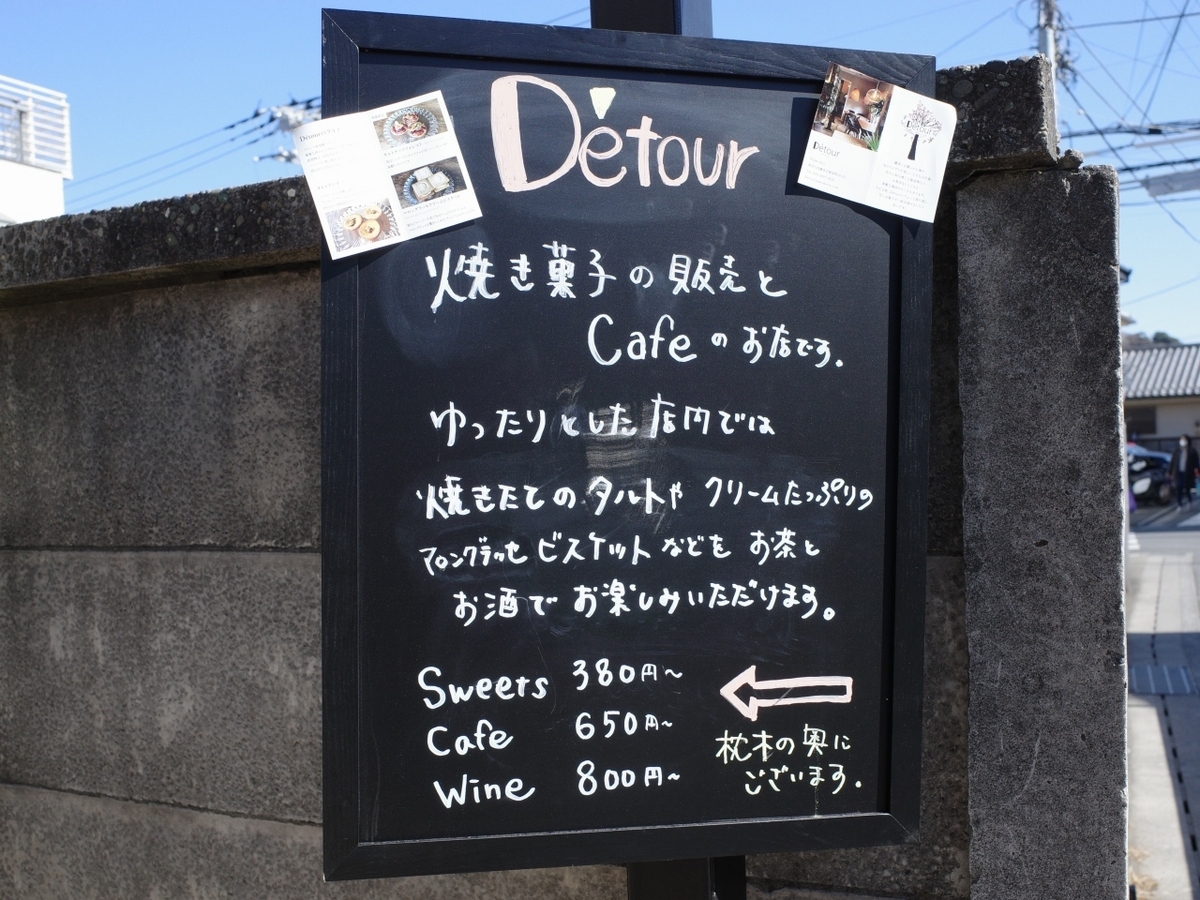 Détour
焼き菓子の販売と
Cafeのお店です。
ゆったりとした店内では
焼きたてのタルトや クリームたっぷりの
マロングラッセ ビスケットなどを お茶と
お酒で お楽しみいただけます。
Sweets 380円~
Cafe 650円~
Wine 800円~
枕木の奥に
ございます。
Détour
Détour